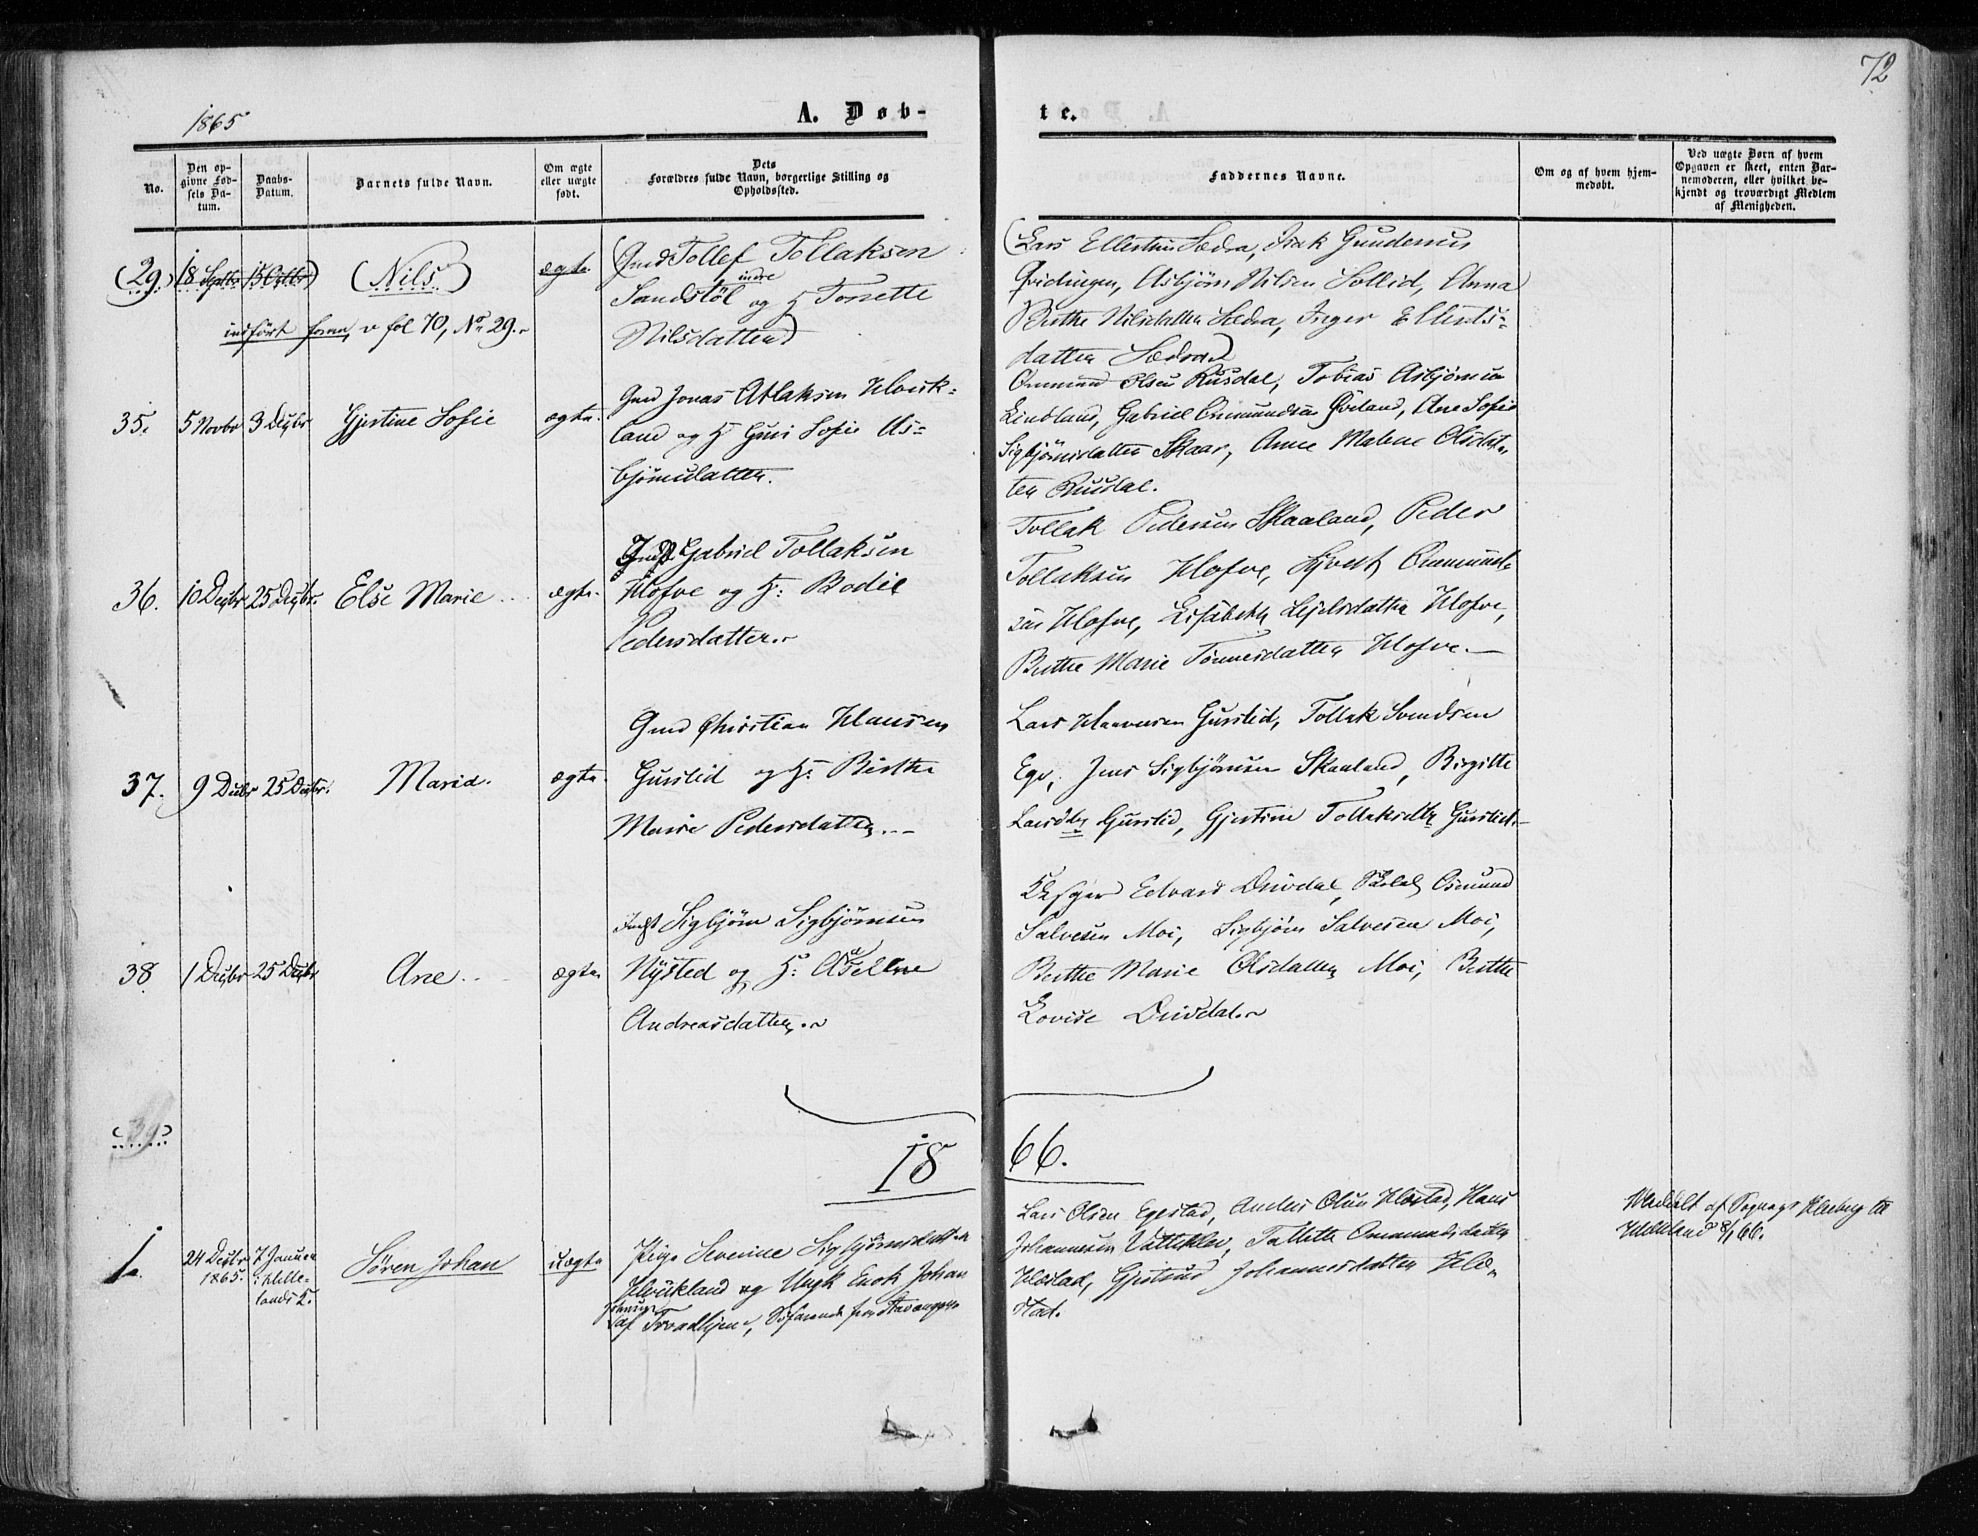 72
1865
A. Døb-
te.
No.
Den op-
givne Fød-
sels Da-
tum.
Daabs-
Datum.
Barnets fulde Navn.
Om ægte
eller uægte
født.
Dets
Forældres fulde Navn, borgerlige Stilling og
Opholdssted.
Faddernes Navne.
Om og af hvem hjem-
medøbt.
Ved uægte Børn af hvem
Opgaven er skeet, enten Bar-
nemoderen, eller hvilket be-
kjendt og troværdigt Medlem
af Menigheden.
(29.) 18 Septbr 15 Octbr) (Nils) ægte
(Gmd Tollef Tollaksen
indre
Sandstöl og H Torrette
Nilsdatter)
indført foran, v fol 70, No 29.
(Lars Ellertsen Sædra, Isak Gundersen
Qvidingen, Asbjørn Nilsen Sollid, Anna
Berthe Nilsdatter Sædra, Inger Ellerts-
datter Sædra)
35. 5 Novbr 3 Decbr Gjertine Sofie ægte.
Gmd Jonas Atlaksen
land og H Guri Sofie As-
bjørnsdatter.
Ommund Olsen Rusdal, Tobias Asbjørnsen
Lindland, Gabriel Ommundsen Øveland, Ane Sofie
Sigbjørnsdatter Skaar, Anne Malene Olsdat-
ter Rusdal.
36. 10 Decbr 25 Decbr. Else Marie ægte.
Gabriel Tollaksen
Hofve og H: Bodil
Pedersdatter.
Tollak Pedersen Skaaland, Peder
Tollaksen Hofve, Ommund-
sen Hofve, Lisabeth Hofve,
Berthe Marie Tønnesdatter Hofve.
37. 9 Decbr 25 Decbr. Maria. ægte.
Gmd Christian Hansen
Gurslid og H: Berthe
Marie Pedersdatter.
Lars Gurslid, Tollak Svendsen
Ege, Jens Sigbjørnsen Skaaland, Birgitte
Larsdtr Gurslid, Gjertine Tollaksdtr Gurslid.
38. 1 Decbr 25 Decbr Ane ægte
Sigbjørn Sigbjørnsen
Nysted og H:
Andreasdatter.
Edvard Drivdal, Osmund
Salvesen Moi, Sigbjørn Salvesen Moi,
Berthe Marie Olsdatter Moi, Berthe
Lovise Drivdal.
(39)
18 66.
1. 24 Decbr
1865.
7 Januar
i Helle-
lands K.
Søren Johan uægte
Pige Severine Sigbjørnsdatter
og Ungk Enok Johan
af Trondhjem, Søfarende fra Stavanger
Lars Olsen Egestad, Anders Olsen Hæstad, Hans
Johannesen Vatteklev, Tallette Ommundsdatter
Hæstad, Gjertrud Johannesdatter Hæ-
stad.
Meddelt af Sognepr
Helleland 8/1 66.